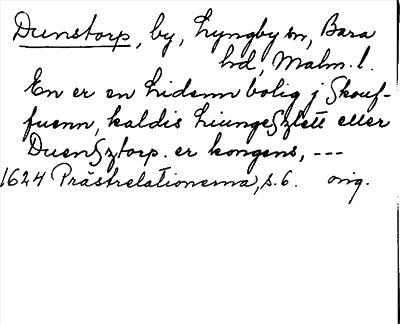 Dunstorp, by, Lyngby sn, Bara
hd, Malm. l.
En er en hidenn bolig j Skouf-
fuenn, kaldis LiungeSzlett eller
DuenSztorp. er kongens, ---
1624 Prästrelationerna, s. 6. orig.